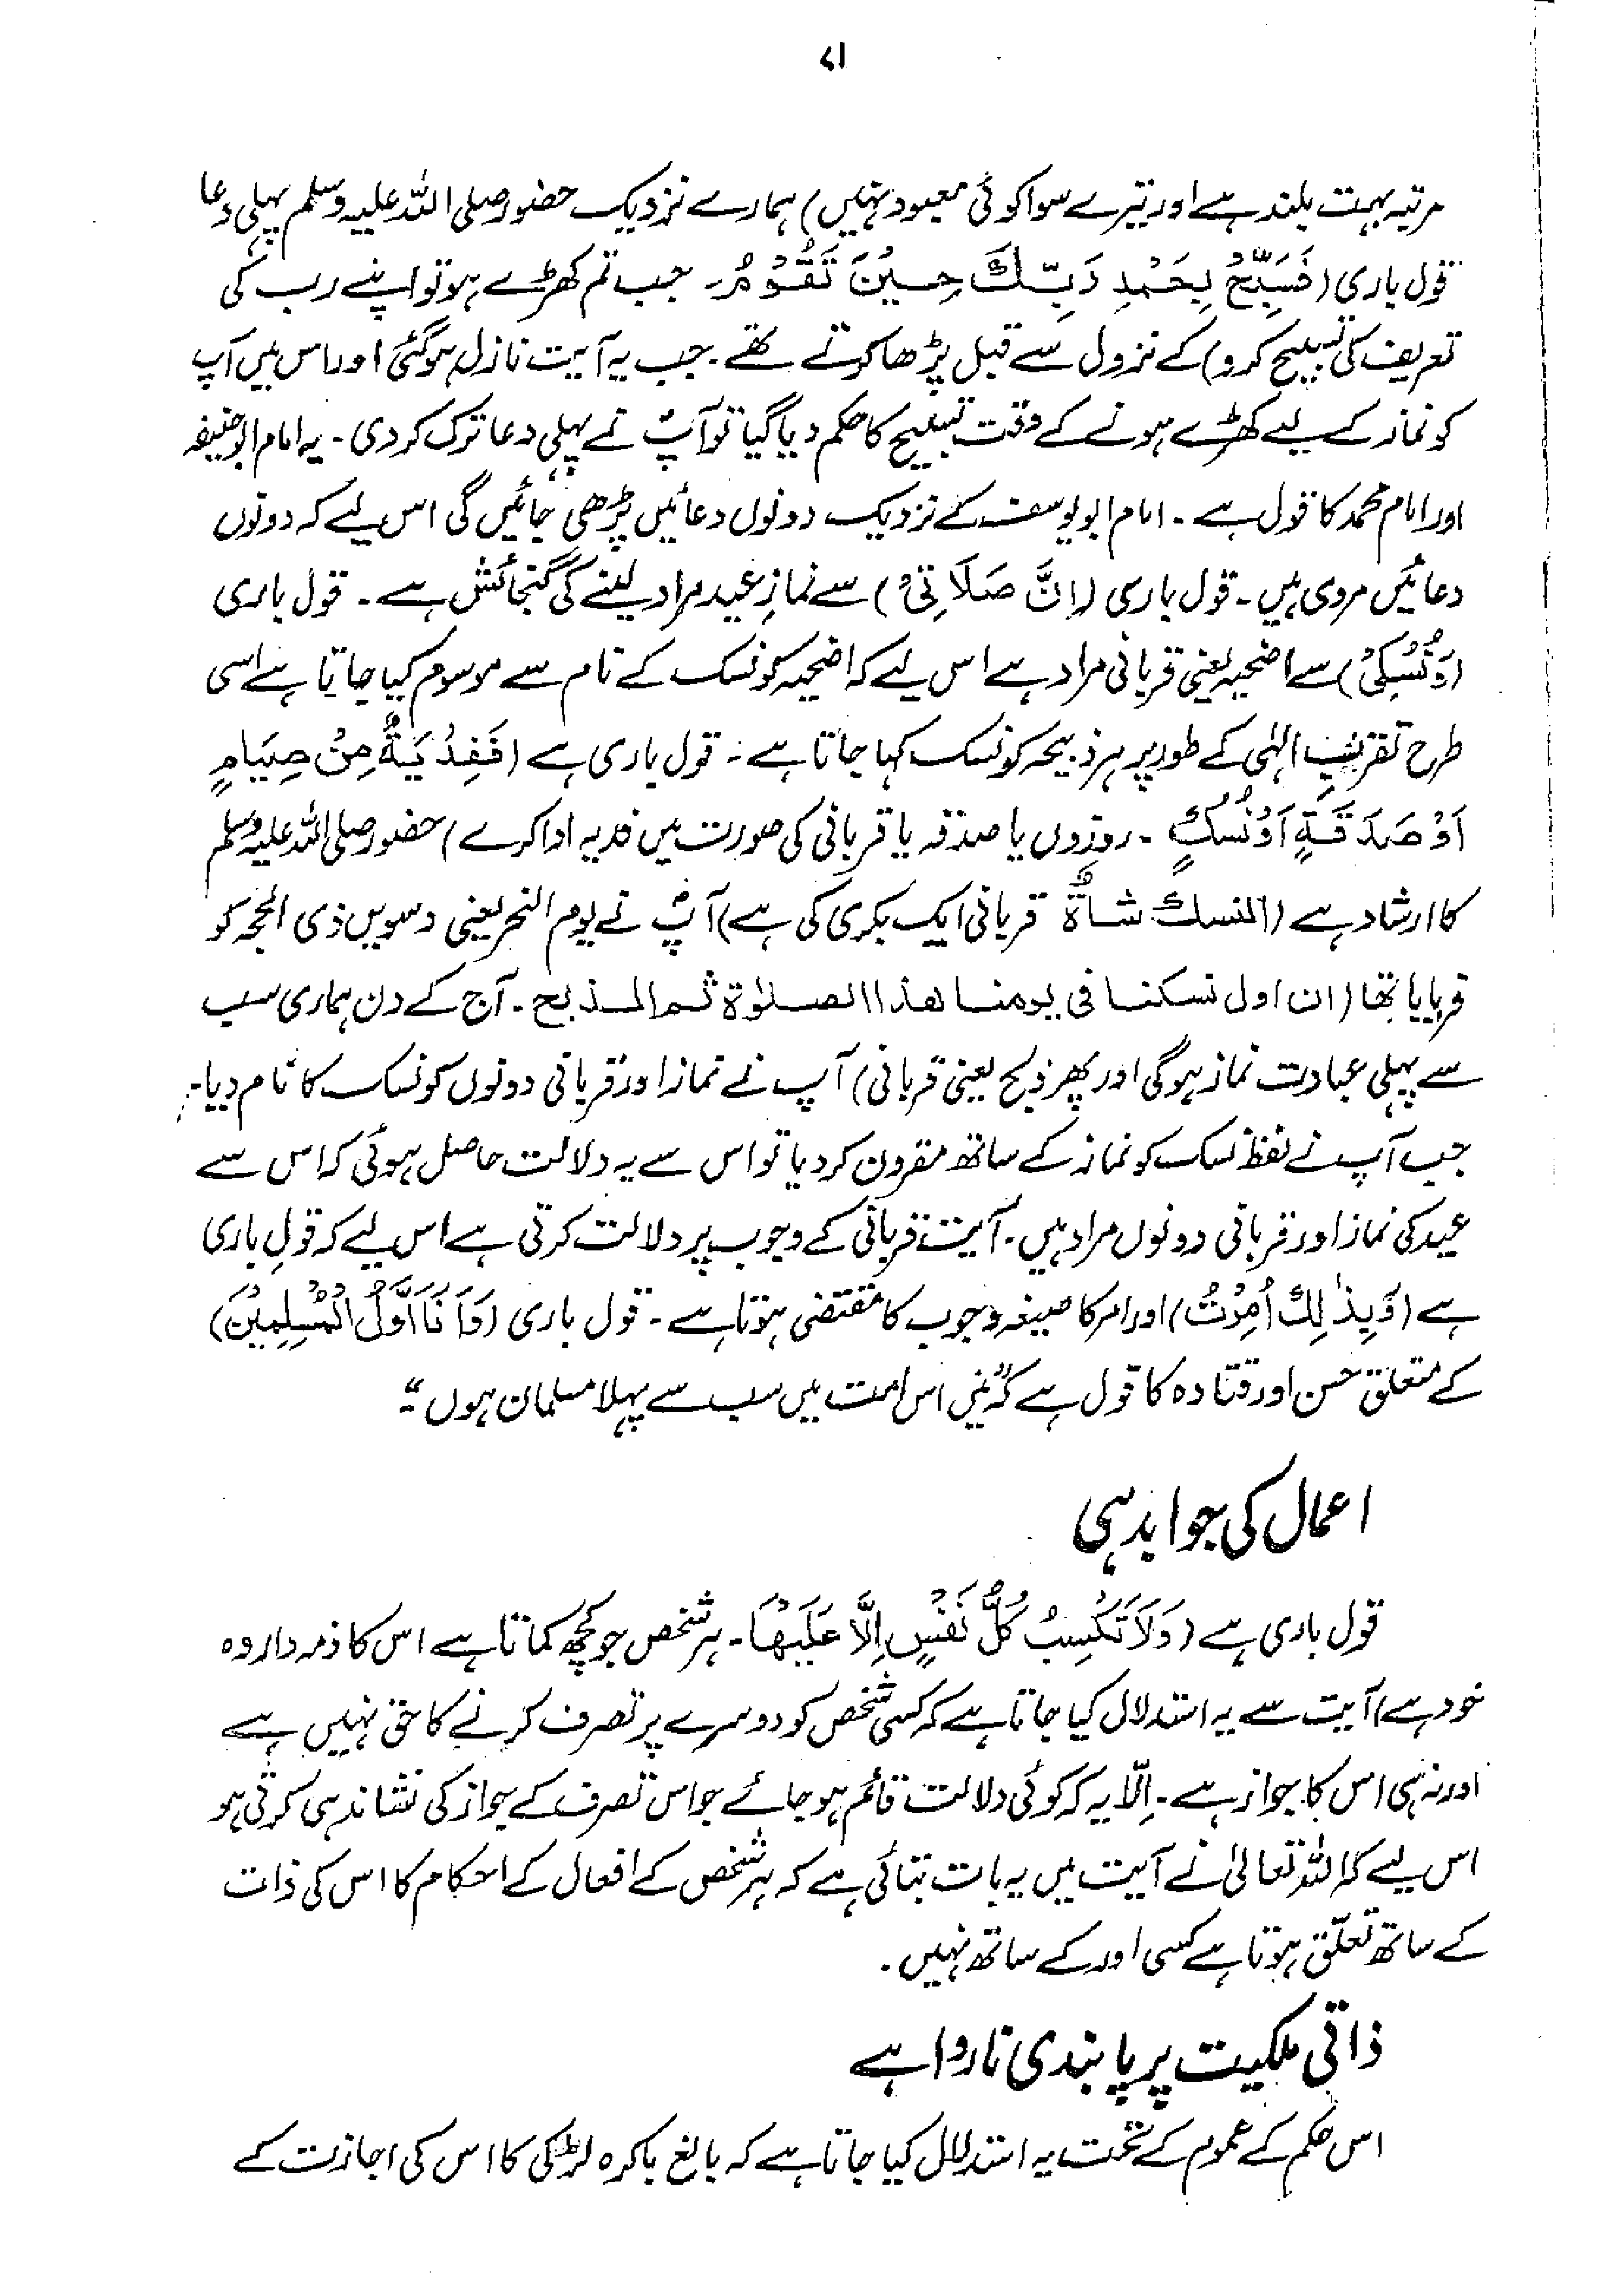 ۷۱
مرتبہ بہت بلند ہے اور تیرے سوا کوئی معبود نہیں) ہمارے نزدیک حضور صلی اللہ علیہ وسلم پہلی دعا
قول باری (فَسَبِّحْ بِحَمْدِ رَبِّكَ حِيْنَ تَقُوْمُ۔ جب تم کھڑے ہو تو اپنے رب کی
تعریف کی تسبیح کرو) کے نزول سے قبل پڑھا کرتے تھے۔ جب یہ آیت نازل ہوگئی اور اس میں آپ
کو نماز کے لیے کھڑے ہونے کے وقت تسبیح کا حکم دیا گیا تو آپؐ نے پہلی دعا ترک کردی۔ یہ امام ابوحنیفہ
اور امام محمد کا قول ہے۔ امام ابویوسف کے نزدیک دونوں دعائیں پڑھی جائیں گی اس لیے کہ دونوں
دعائیں مروی ہیں۔ قول باری (اِنَّ صَلَاتِیْ) سے نمازِ عید مراد لینے کی گنجائش ہے۔ قول باری
(وَنُسُکِیْ) سے اضحیہ یعنی قربانی مراد ہے اس لیے کہ اضحیہ کو نسک کے نام سے موسوم کیا جاتا ہے اسی
طرح تقربِ الٰہی کے طور پر ہر ذبیحہ کو نسک کہا جاتا ہے۔ قول باری ہے (فَفِدْيَةٌ مِنْ صِيَامٍ
اَوْ صَدَقَةٍ اَوْ نُسُكٍ ۔ روزوں یا صدقہ یا قربانی کی صورت میں فدیہ ادا کرے) حضور صلی اللہ علیہ وسلم
کا ارشاد ہے (النسك شاةٌ قربانی ایک بکری کی ہے) آپؐ نے یوم النحر یعنی دسویں ذی الحجہ کو
فرمایا تھا (ان اول نسكنا فی یومنا هذا الصلوٰة ثم الذبح۔ آج کے دن ہماری سب
سے پہلی عبادت نماز ہوگی اور پھر ذبح یعنی قربانی) آپ نے نماز اور قربانی دونوں کو نسک کا نام دیا۔
جب آپ نے لفظ نسک کو نماز کے ساتھ مقرون کردیا تو اس سے یہ دلالت حاصل ہوئی کہ اس سے
عید کی نماز اور قربانی دونوں مراد ہیں۔ آیت قربانی کے وجوب پر دلالت کرتی ہے اس لیے کہ قولِ باری
ہے (وَبِذٰلِكَ اُمِرْتُ) اور امر کا صیغہ وجوب کا مقتضی ہوتا ہے۔ قول باری (وَاَنَا اَوَّلُ الْمُسْلِمِيْنَ)
کے متعلق حسن اور قتادہ کا قول ہے کہ ”میں اس امت میں سب سے پہلا مسلمان ہوں“۔
اعمال کی جوابدہی
قول باری ہے (وَلَا تَكْسِبُ كُلُّ نَفْسٍ اِلَّا عَلَيْهَا۔ ہر شخص جو کچھ کماتا ہے اس کا ذمہ دار وہ
خود ہے) آیت سے یہ استدلال کیا جاتا ہے کہ کسی شخص کو دوسرے پر تصرف کرنے کا حق نہیں ہے
اور نہ ہی اس کا جواز ہے۔ اِلّا یہ کہ کوئی دلالت قائم ہو جائے جو اس تصرف کے جواز کی نشاندہی کرتی ہو
اس لیے کہ اللہ تعالیٰ نے آیت میں یہ بات بتائی ہے کہ ہر شخص کے افعال کے احکام کا اس کی ذات
کے ساتھ تعلّق ہوتا ہے کسی اور کے ساتھ نہیں۔
ذاتی ملکیت پر پابندی ناروا ہے
اس حکم کے عموم کے تحت یہ استدلال کیا جاتا ہے کہ بالغ باکرہ لڑکی کا اس کی اجازت کے